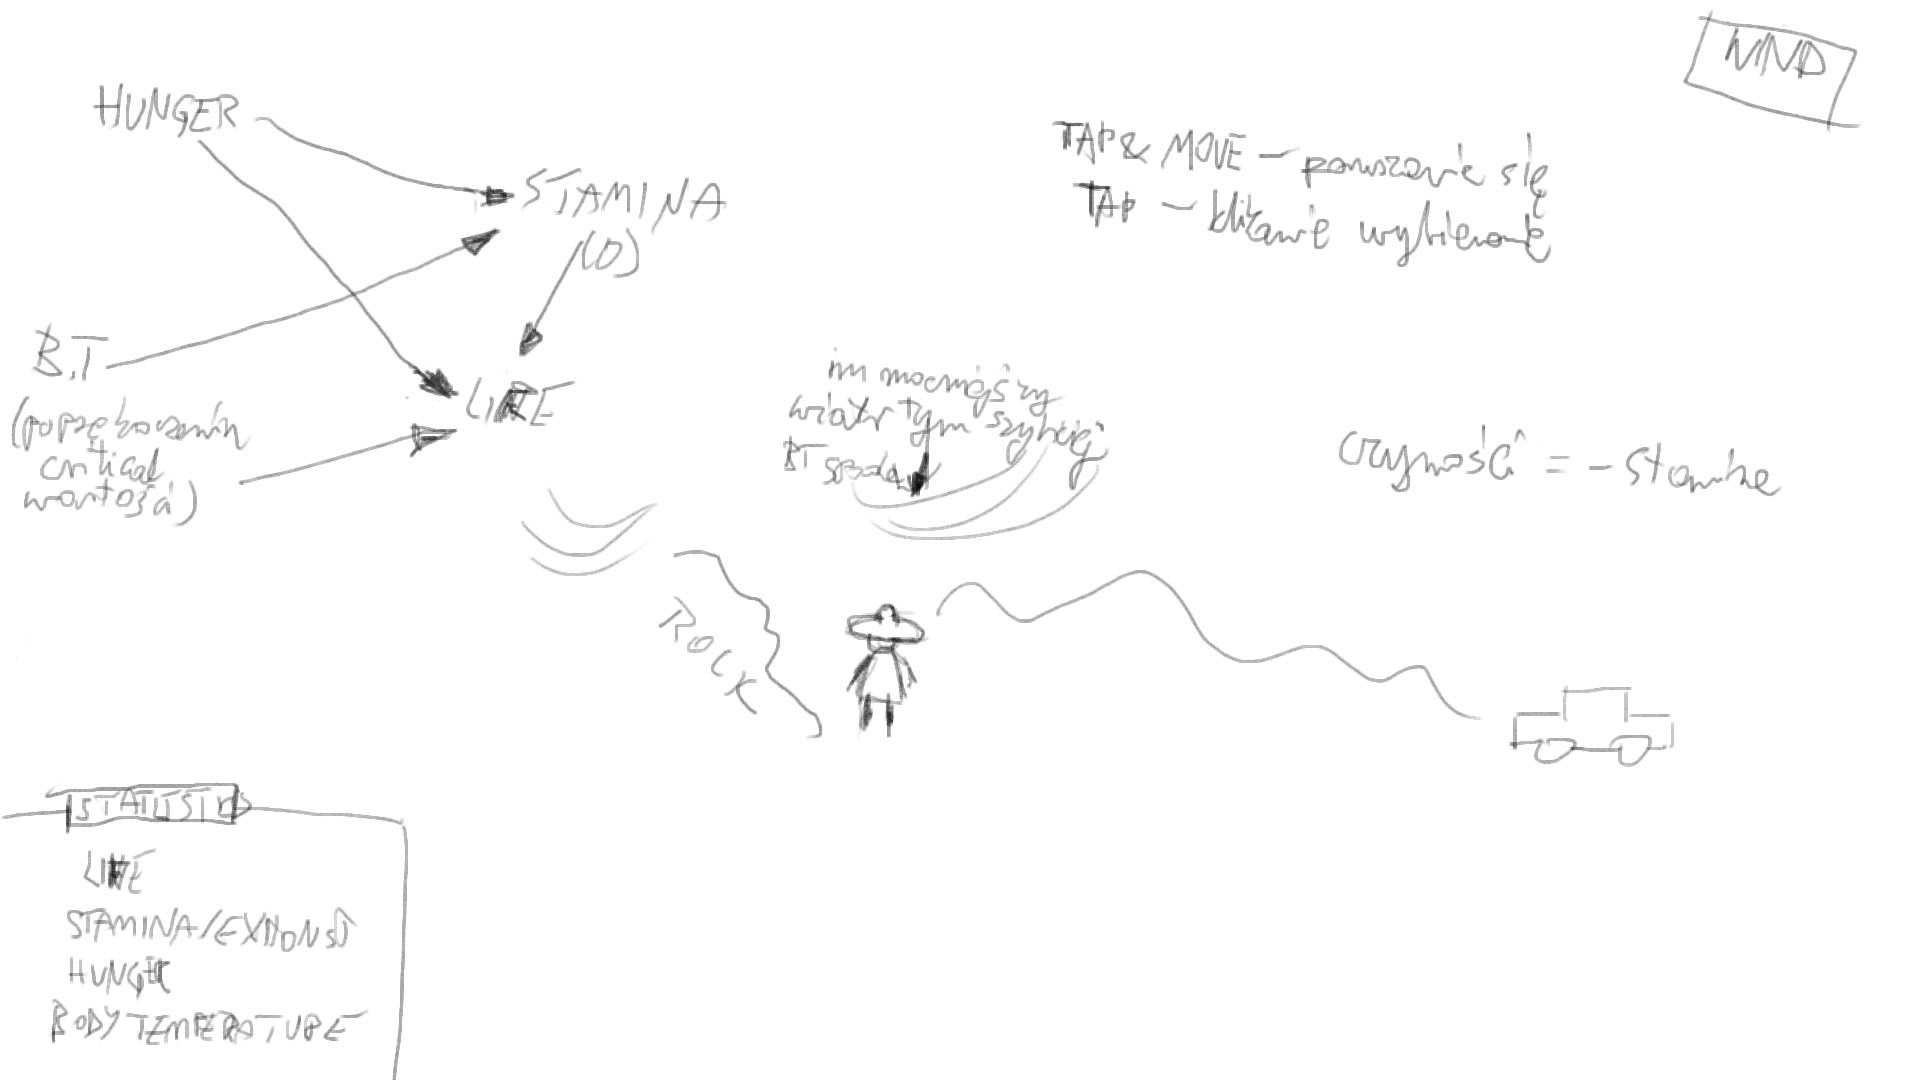 WIND
HUNGER
TAP & MOVE - poruszanie się
STAMINA
TAP - klikanie wybieranie
(0)
B.T
LIFE
(po przekroczeniu
critical
wartości)
im mocniejszy
wiatr tym szybciej
BT spada
czynności = - stamina
ROCK
STATISTICS
LIFE
STAMINA/EXHAUST
HUNGER
BODY TEMPERATURE